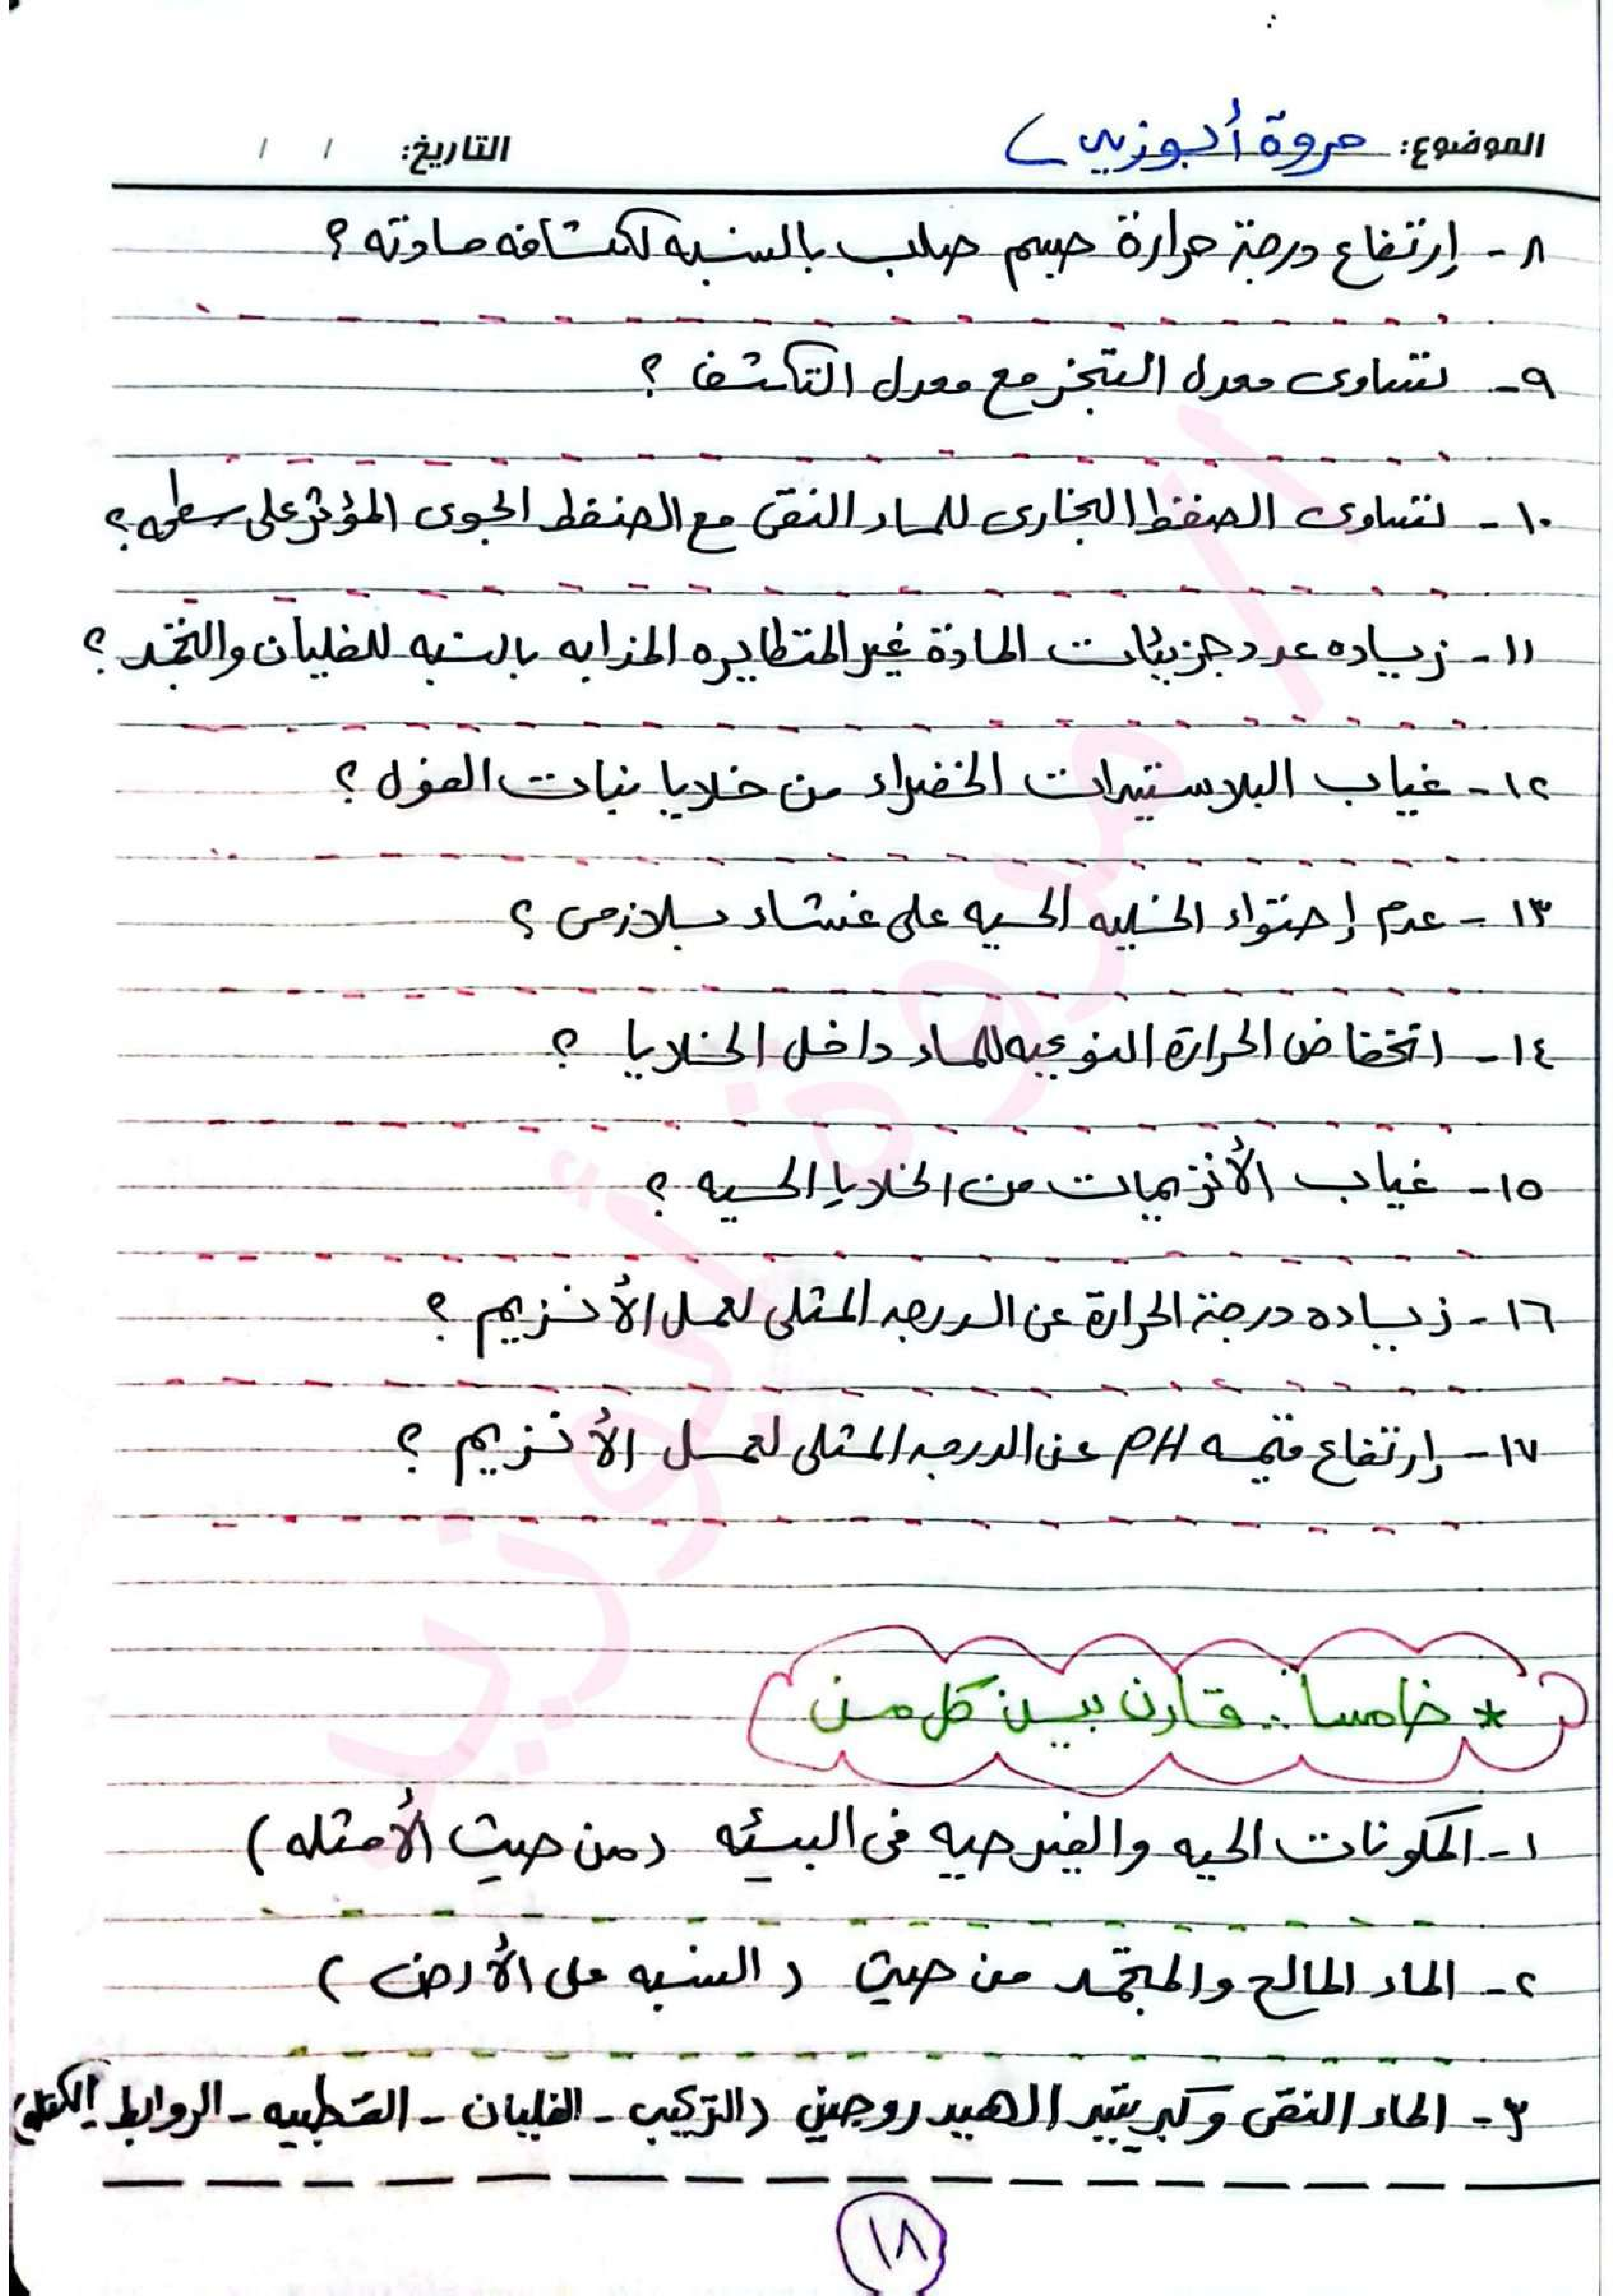 الموضوع: مروة أبوزيد
التاريخ: / /
٨- إرتفاع درجة حرارة جسم صلب بالنسبه لكثافه مادته ؟
٩- تساوى معدل التبخر مع معدل التكثف ؟
١٠- تساوى الضغط البخارى للماء النقى مع الضغط الجوى المؤثر على سطحه ؟
١١- زياده عدد جزيئات المادة غير المتطايره المذابه بالنسبه للغليان والتجمد ؟
١٢- غياب البلاستيدات الخضراء من خلايا نبات الفول ؟
١٣- عدم إحتواء الخليه الحيه على غشاء بلازمى ؟
١٤- انخفاض الحرارة النوعيه للماء داخل الخلايا ؟
١٥- غياب الأنزيمات من الخلايا الحيه ؟
١٦- زياده درجة الحرارة عن الدرجه المثلى لعمل الأنزيم ؟
١٧- إرتفاع قيمه PH عن الدرجه المثلى لعمل الأنزيم ؟
* خامسا : قارن بين كل من
١- المكونات الحيه والغير حيه فى البيئه (من حيث الأمثله)
٢- الماء المالح والمتجمد من حيث (النسبه على الأرض)
٣- الماء النقى وكبريتيد الهيدروجين (التركيب - الغليان - القطبيه - الروابط
١٨
مروة أبوزيد